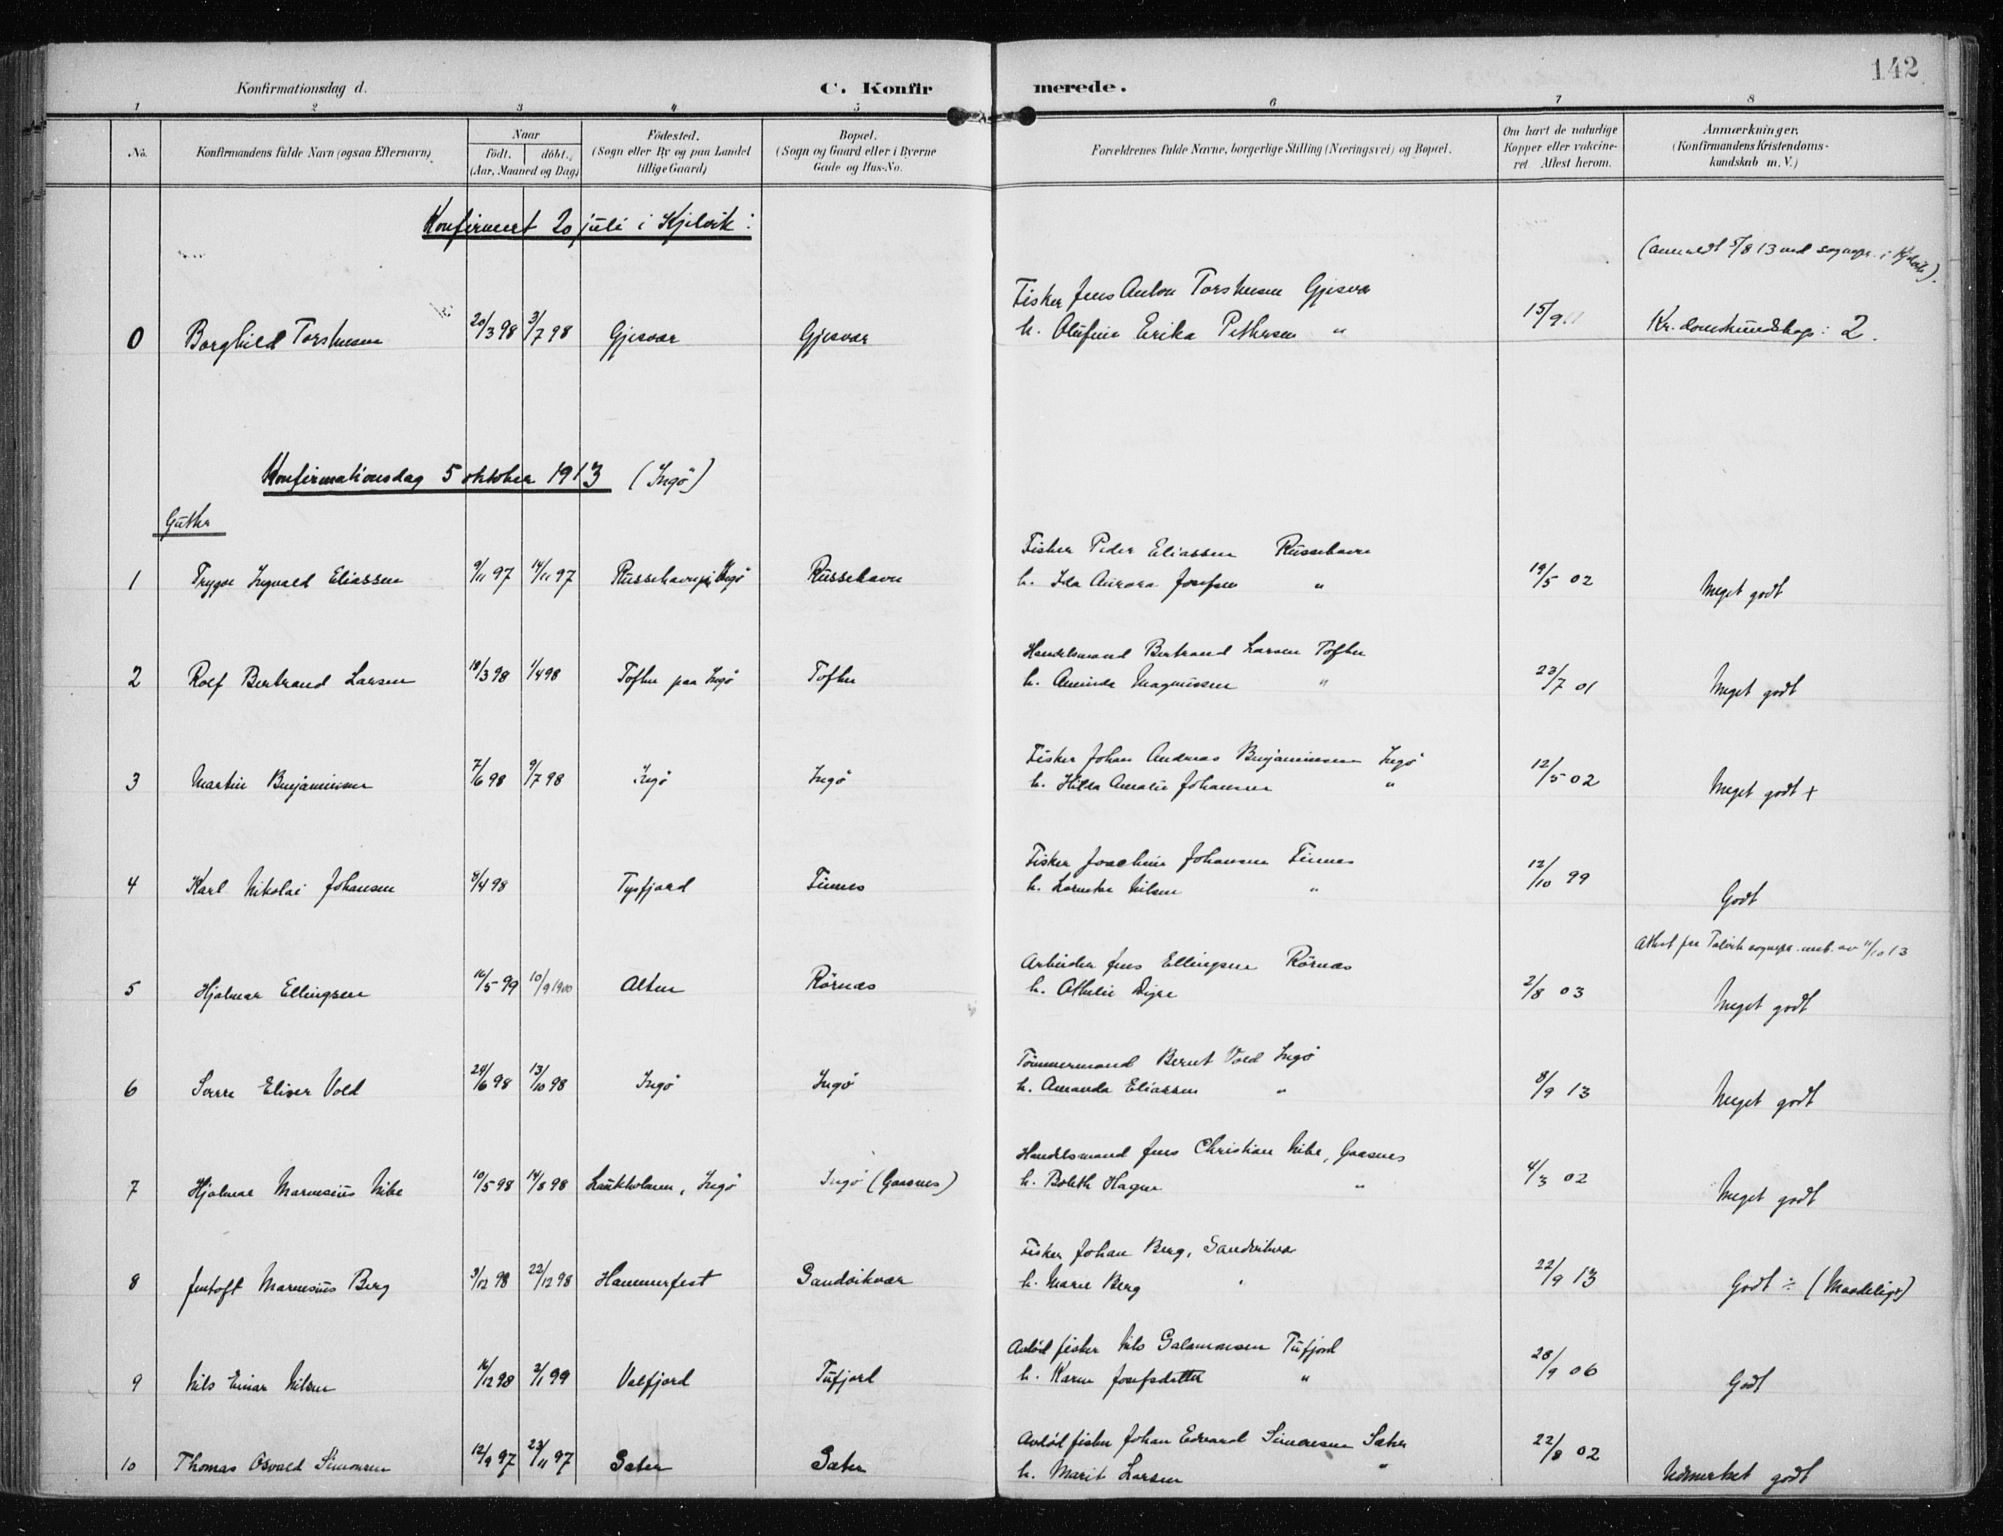 142
Konfirmationsdag d. C. Konfirmerede.
1 2 3 4 5 6 7 8
No. Konfirmandens fulde Navn (ogsaa Efternavn) Naar födt. döbt. (Aar, Maaned og Dag) Födested. (Sogn eller By og paa Landet tillige Gaard) Bopæl. (Sogn og Gaard eller i Byerne Gade og Hus-No. Forældrenes fulde Navne, borgerlige Stilling (Næringsvei) og Bopæl. Om havt de naturlige Kopper eller vakcineret Attest herom. Anmærkninger. (Konfirmandens Kristendomskundskab m. V.)
Konfirmert 20 juli i Kjelvik:
(anmeldt 5/8 13 ved sognepr. i Kjelvik).
Fisker Jens Anton Torstensen Gjesvær
0 Borghild Torstensen 20/3 98 3/7 98 Gjesvær Gjesvær h. Olufine Erika Pettersen " 15/9 Kr.domskundskap: 2.
Konfirmationsdag 5 oktober 1913 (Ingö)
Gutter
Fisker Peder Eliassen Russehavn
1 Trygve Ingvald Eliassen 9/11 97 14/11 97 Russehavn, Ingö Russehavn h. Ida Aurora Josefsen " 19/5 02 Meget godt
Handelsmand Bertrand Larsen Toften
2 Rolf Bertrand Larsen 18/3 98 1/4 98 Toften paa Ingö Toften h. Aminda Magnussen " 23/7 01 Meget godt
Fisker Johan Andreas Benjaminsen Ingö
3 Martin Benjaminsen 7/6 98 9/7 98 Ingö Ingö h. Hilda Amalie Johansen " 12/5 02 Meget godt +
Fisker Joachim Johansen Finnes
4 Karl Nikolai Johansen 4/98 Tysfjord Finnes h. Nilsen " 12/10 99 Godt
Attest fra Talvik sognepr. emb. av 11/10 13
Arbeider Jens Ellingsen Rörnæs
5 Hjalmar Ellingsen 16/5 99 10/9 1900 Alten Rörnæs h. Digre 2/8 03 Meget godt
Tömmermand Bernt Vold Ingö
6 Sverre Eliver Vold 24/6 98 13/10 98 Ingö Ingö h. Amanda Eliassen " 8/9 13 Meget godt
Handelsmand Jens Christian Nibe, Gaasnes
7 Hjalmar Marensius Nibe 10/5 98 14/8 98 Laukholmen, Ingö Ingö (Gaasnes) h. Boleth Hagen " 4/3 02 Meget godt
Fisker Johan Berg, Sandvikvær
8 Jentoft Marensius Berg 9/12 98 22/12 98 Hammerfest Sandvikvær h. Maren Berg " 22/9 13 Godt ÷ (Maadelig)
Avdöd fisker Nils Salamonsen Tufjord
9 Nils Einar Nilsen 16/12 98 2/1 99 Valfjord Tufjord h. Karen Josefsdatter " 28/9 06 Godt
Avdöd fisker Johan Edvard Simonsen Sæter
10 Thomas Osvald Simonsen 12/9 97 23/11 97 Sæter Sæter h. Marit Larsen " 22/8 02 Udmerket godt